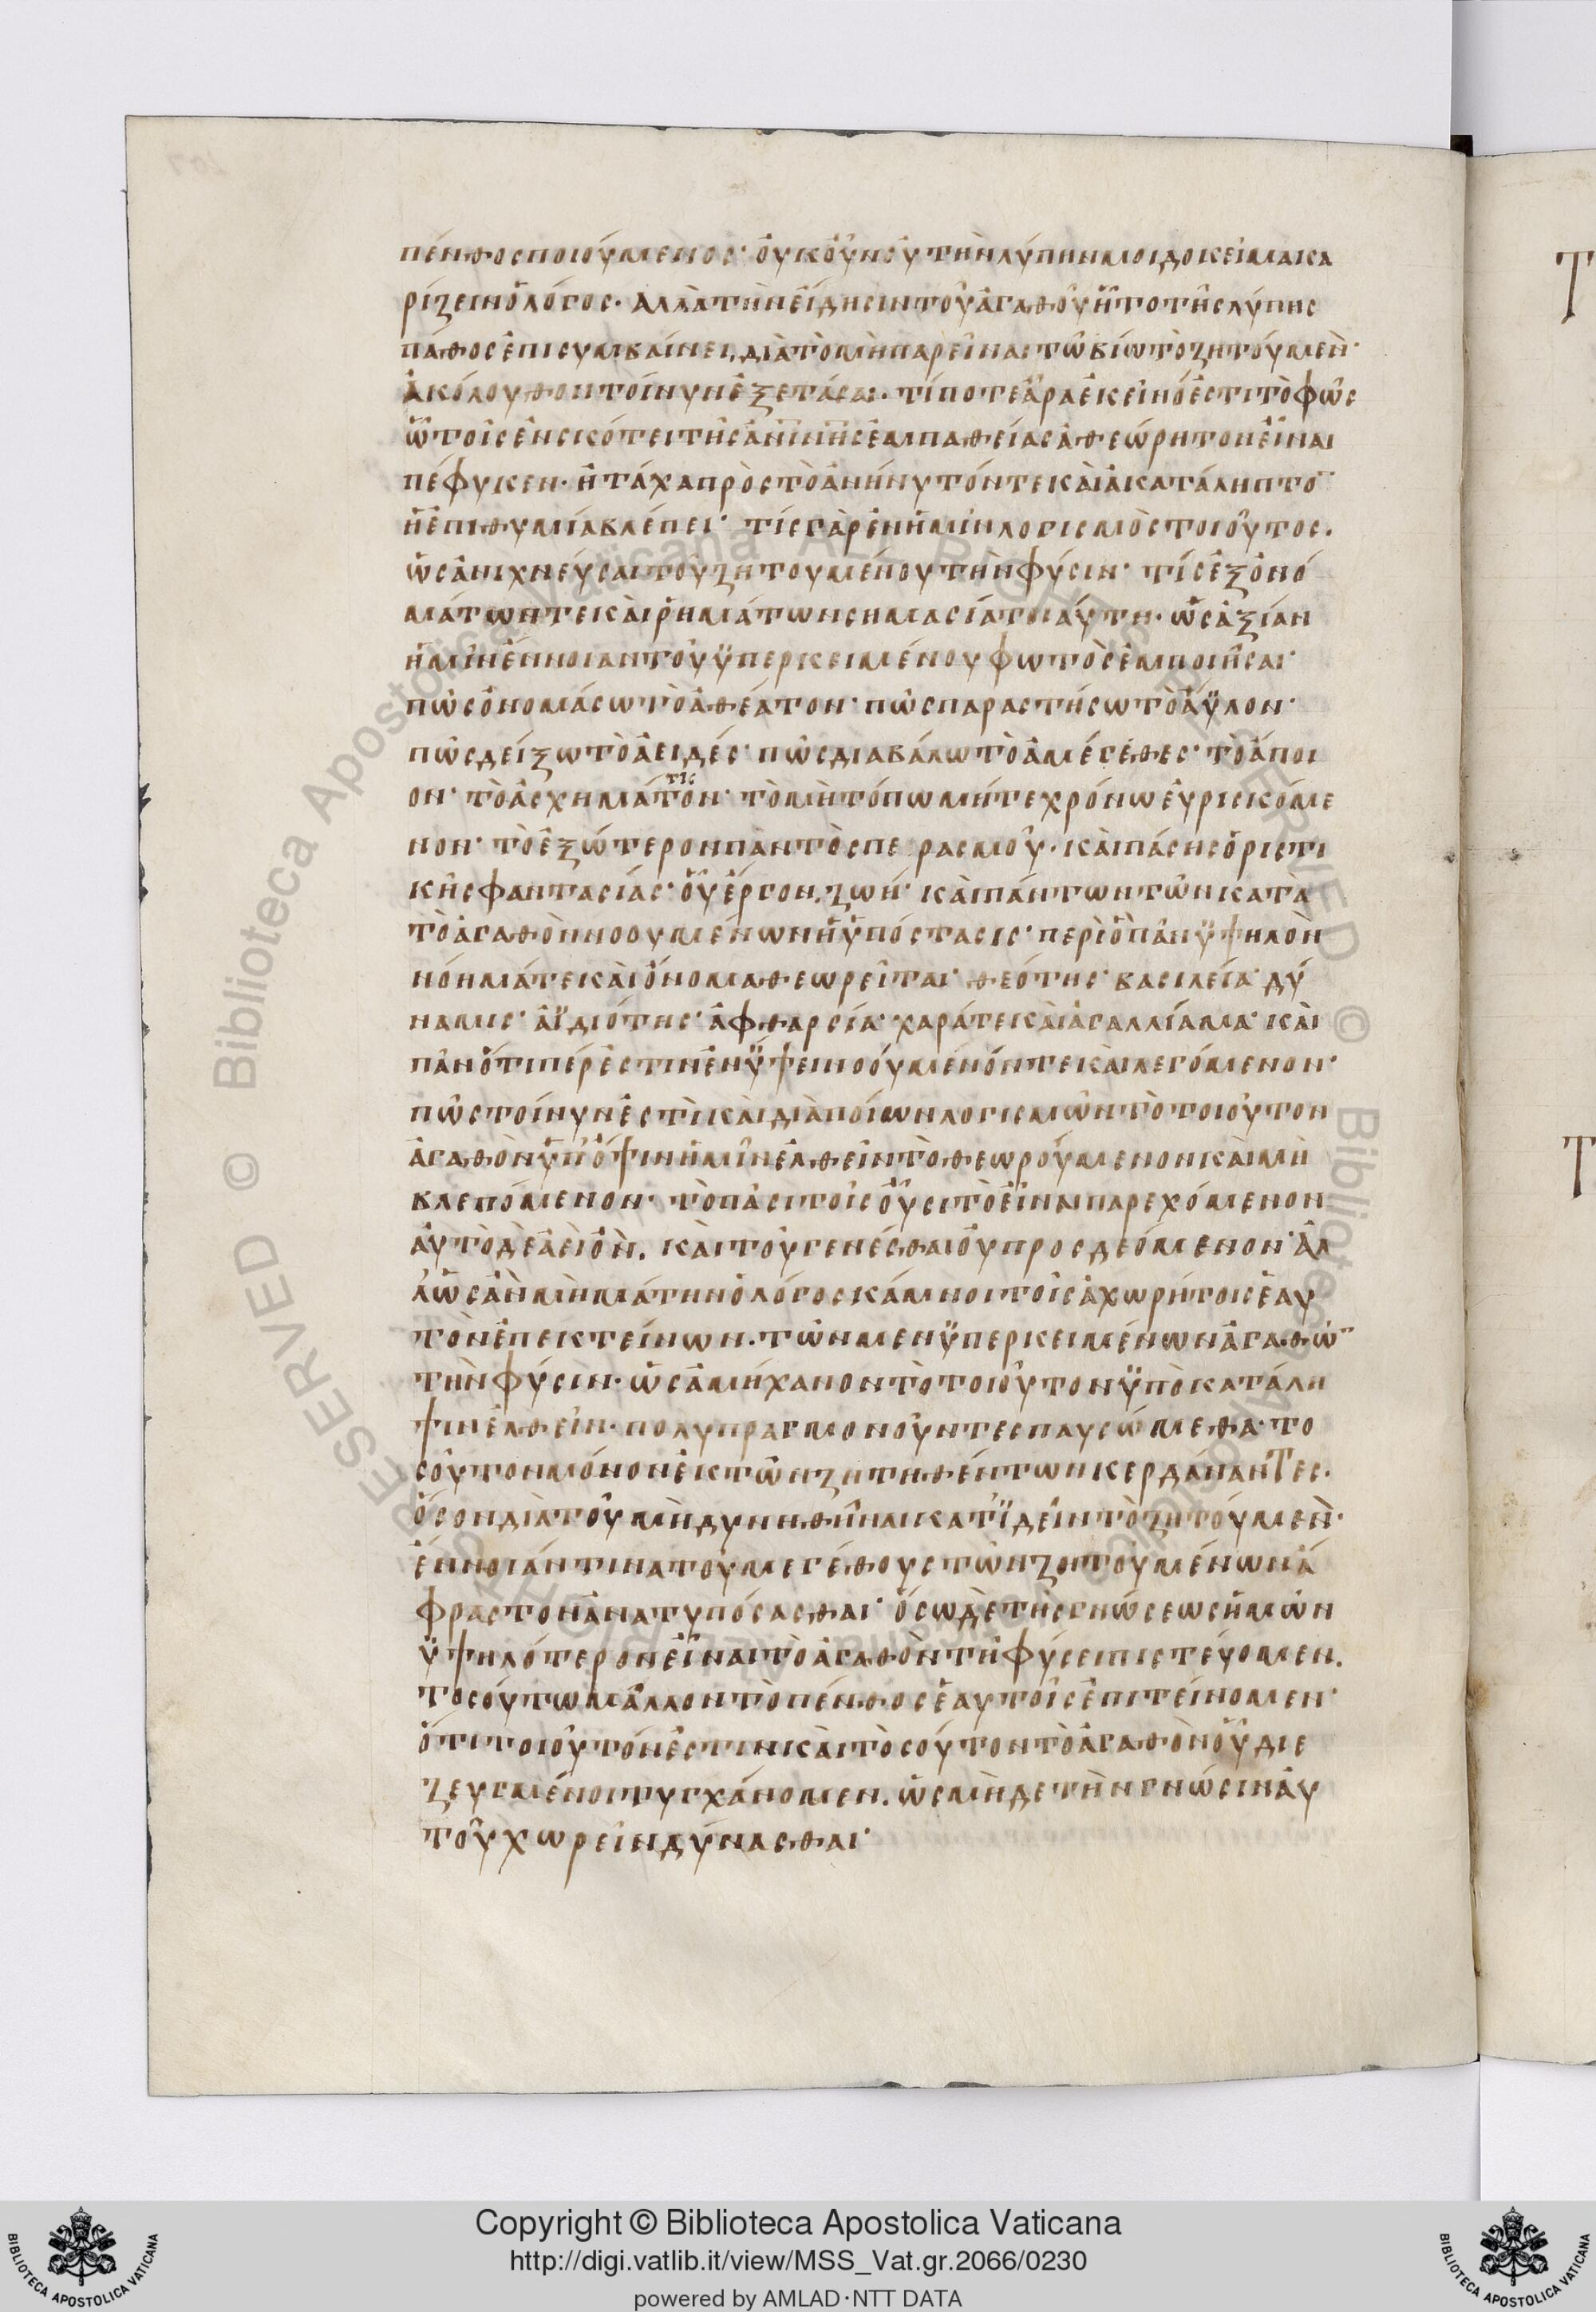 πένθος ποιούμενος· οὐκοῦν οὐ τὴν λύπην μοι δοκεῖ μακα
ρίζειν ὁ λόγος· ἀλλὰ τὴν εἴδησιν τοῦ ἀγαθοῦ ἧ τὸ τῆς λύπης
παθος ἐπισυμβαίνει, διὰ τὸ μὴ παρεῖναι τῷ βίω τὸ ζητούμεν̀·
ἀκόλουθον τοίνυν ἐξετάσαι· τί ποτε ἄρα ἐκεῖνό ἐστι τὸ φῶς
ὧ τοῖς ἐν σκότει τῆς ἀνινῆς ἐμπαθείας ἀθεώρητον εἶναι
πέφυκεν· ἢ τάχα πρὸς τὸ ἀνήνυτόν τε καὶ ἀκατάληπτο ̅
ἡ ἐπιθυμία βλέπει· τίς γὰρ ἐν ἡμῖν λογισμὸς τοιοῦτος.
ὡς ἀνιχνεύσαι τοῦ ζητουμένου τὴν φύσιν· τίς ἐξ ὀνο
μάτων τε καὶ ῥημάτων σημασία τοιαύτη· ὡς ἀξίαν
ἡμῖν ἔννοιαν τοῦ ϋπερκειμένου φωτὸς ἐμποιῆσαι·
πῶς ὀνομάσω τὸ ἀθέατον· πῶς παραστήσω τὸ ἄϋλον·
πῶς δείξω τὸ ἀειδές· πῶς διαβάλω τὸ ἀμέγεθες· τὸ ἄποι
ον· τὸ ἀσχημάτὸν· τὸ μὴ τόπω μήτε χρόνω εὑρισκόμε
νον· τὸ ἐξώτερον παντὸς πε ρασμοῦ· καὶ πάσης ὁριστι
κῆς φαντασίας· οὗ ἔργον. ζωή· καὶ πάντων τῶν κατὰ
τὸ ἀγαθὸν νοουμένων ἡ ϋπόστασις· περὶ ὃ πᾶν ϋψηλὸν
νόημά τε καὶ ὄνομα θεωρεῖται· θεότης· βασιλεία· δύ
ναμις· ἀϊδιότης· ἀφθαρσία· χαρά τε καὶ ἀγαλλίαμα· καὶ
πᾶν ὅτι πέρ ἐστιν ἐν ϋψει νοούμενόν τε καὶ λεγόμενον·
πῶς τοίνυν ἐστὶ καὶ διὰ ποίων λογισμῶν τὸ τοιοῦτον
ἀγαθὸν ϋπ' ὄψιν ἡμῖν ἐλθεῖν τὸ θεωρούμενον καὶ μὴ
βλεπόμενον· τὸ πᾶσι τοῖς οὖσι τὸ εἶναι παρεχόμενον
αὐτὸ δὲ ἀεὶ ὂν. καὶ τοῦ γενέσθαι οὐ προσδεόμενον· ἀλ
λ' ὡς ἂν μὴ μάτην ὁ λόγος κάμνοι τοῖς ἀχωρήτοις ἑαυ
τὸν ἐπεκτείνων. τῶν μεν ϋπερκειμένων ἀγαθῶ ̅
τὴν φύσιν· ὡς ἀμήχανον τὸ τοιοῦτον ϋπὸ κατάλη
ψιν ἐλθεῖν· πολυπραγμονοῦντες παυσώμεθα· το
σοῦτον μόνον ἐκ τῶν ζητηθέντων κερδάναντες.
ὅσον διὰ τοῦ μὴ δυνηθῆναι κατϊδεῖν τὸ ζητούμεν̀·
ἔννοιάν τινα τοῦ μεγέθους τῶν ζητουμένων ἄ
φραστον ἀνατυπόσασθαι· ὅσω δὲ τῆς γνώσεως ἡμῶν
ϋψηλότερον εἶναι τὸ ἀγαθὸν τῆ φύσει πιστεύομεν.
τοσούτω μᾶλλον τὸ πένθος ἑαυτοῖς ἐπιτείνομεν·
ὅτι τοιοῦτόν ἐστιν καὶ τοσούτον τὸ ἀγαθὸν οὗ διε
ζευγμένοι τυγχάνομεν. ὡς μὴδε τὴν γνώσιν αὐ
τοῦ χωρεῖν δύνασθαι·
Copyright © Biblioteca Apostolica Vaticana
http://digi.vatlib.it/view/MSS_Vat.gr.2066/0230
powered by AMLAD·NTT DATA